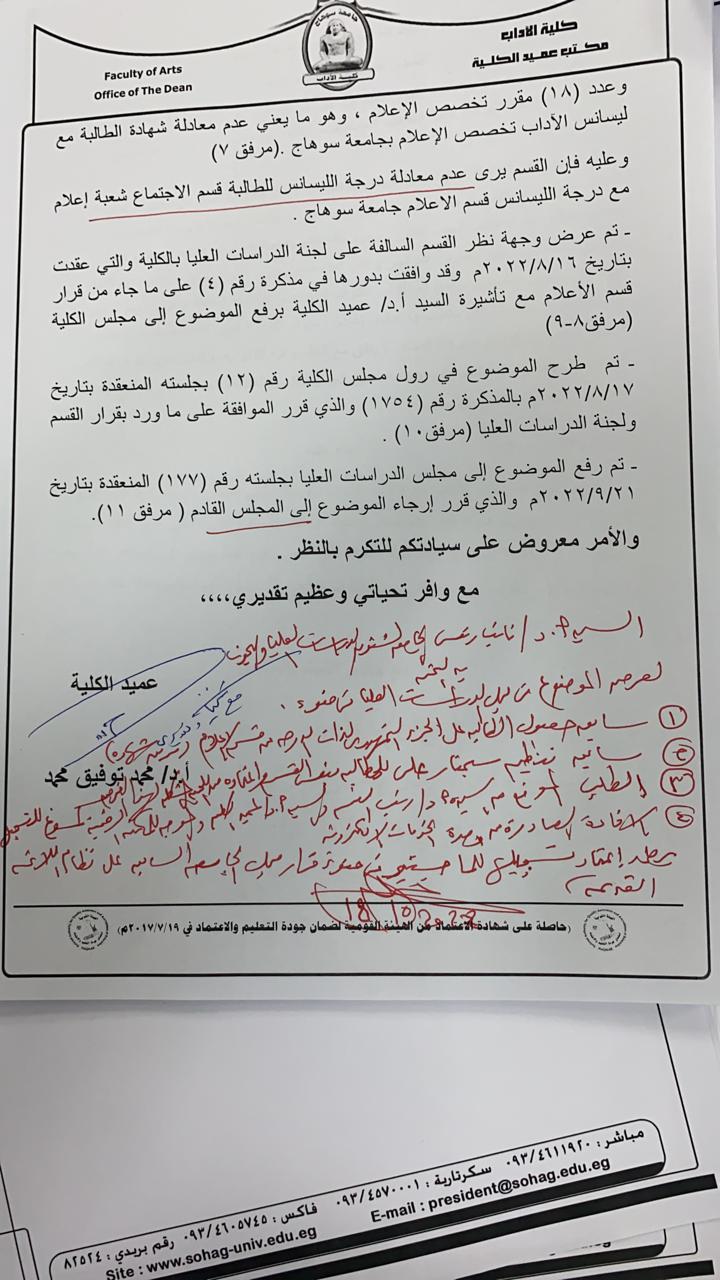 جامعة سوهاج
كلية الآداب
كلية الاداب
مكتب عميد الكلية
Faculty of Arts
Office of The Dean
وعدد (١٨) مقرر تخصص الإعلام ، وهو ما يعني عدم معادلة شهادة الطالبة مع
ليسانس الآداب تخصص الإعلام بجامعة سوهاج .(مرفق ٧)
وعليه فإن القسم يرى عدم معادلة درجة الليسانس للطالبة قسم الاجتماع شعبة إعلام
مع درجة الليسانس قسم الاعلام جامعة سوهاج .
ـ تم عرض وجهة نظر القسم السالفة على لجنة الدراسات العليا بالكلية والتي عقدت
بتاريخ ٢٠٢٢/٨/١٦م وقد وافقت بدورها في مذكرة رقم (٤) على ما جاء من قرار
قسم الأعلام مع تأشيرة السيد أ.د/ عميد الكلية برفع الموضوع إلى مجلس الكلية
(مرفق٨-٩)
ـ تم طرح الموضوع في رول مجلس الكلية رقم (١٢) بجلسته المنعقدة بتاريخ
٢٠٢٢/٨/١٧م بالمذكرة رقم (١٧٥٤) والذي قرر الموافقة على ما ورد بقرار القسم
ولجنة الدراسات العليا (مرفق١٠) .
ـ تم رفع الموضوع إلى مجلس الدراسات العليا بجلسته رقم (١٧٧) المنعقدة بتاريخ
٢٠٢٢/٩/٢١م والذي قرر إرجاء الموضوع إلى المجلس القادم ( مرفق ١١).
والأمر معروض على سيادتكم للتكرم بالنظر .
مع وافر تحياتي وعظيم تقديري،،،،
السيد أ.د/ نائب رئيس الجامعة لشئون الدراسات العليا والبحوث
عميد الكلية
لعرض الموضوع على مجلس الدراسات العليا في ضوء :
① سابقة حصول الطالبة على الجزء التمهيدي
أ.د/ محمد توفيق محمد
② سابقة تنظيم سيمنار على للطالبة بنفس القسم
③ الطلب الموقع من السيد أ.د/ رئيس القسم
④ الإفادة الصادرة من وحدة الخدمات الالكترونية
القديمة)
18/10/2022
(حاصلة على شهادة الاعتماد من الهيئة القومية لضمان جودة التعليم والاعتماد في ٢٠١٧/٧/١٩م)
مباشر : ٠٩٣/٤٦١١٩٢٠ سكرتارية : ٠٩٣/٤٥٧٠٠٠١ فاكس : ٠٩٣/٤٦٠٥٧٤٥ رقم بريدي : ٨٢٥٢٤
E-mail : president@sohag.edu.eg
Site : www.sohag-univ.edu.eg